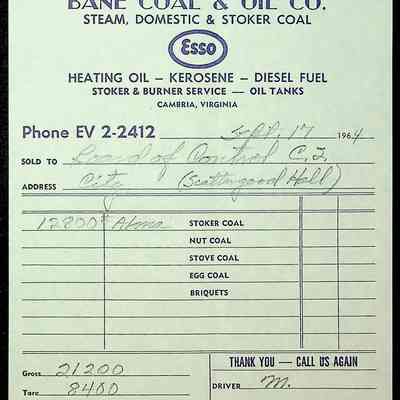 BANE COAL & OIL CO.
STEAM, DOMESTIC & STOKER COAL
Esso
HEATING OIL — KEROSENE — DIESEL FUEL
STOKER & BURNER SERVICE — OIL TANKS
CAMBRIA, VIRGINIA
Phone EV 2-2412 Sept. 17 1964
SOLD TO Board of Control C.I.
ADDRESS City (Scattergood Hall)
12800# STOKER COAL
NUT COAL
STOVE COAL
EGG COAL
BRIQUETS
Gross 21200
THANK YOU — CALL US AGAIN
Tare 8400
DRIVER M.